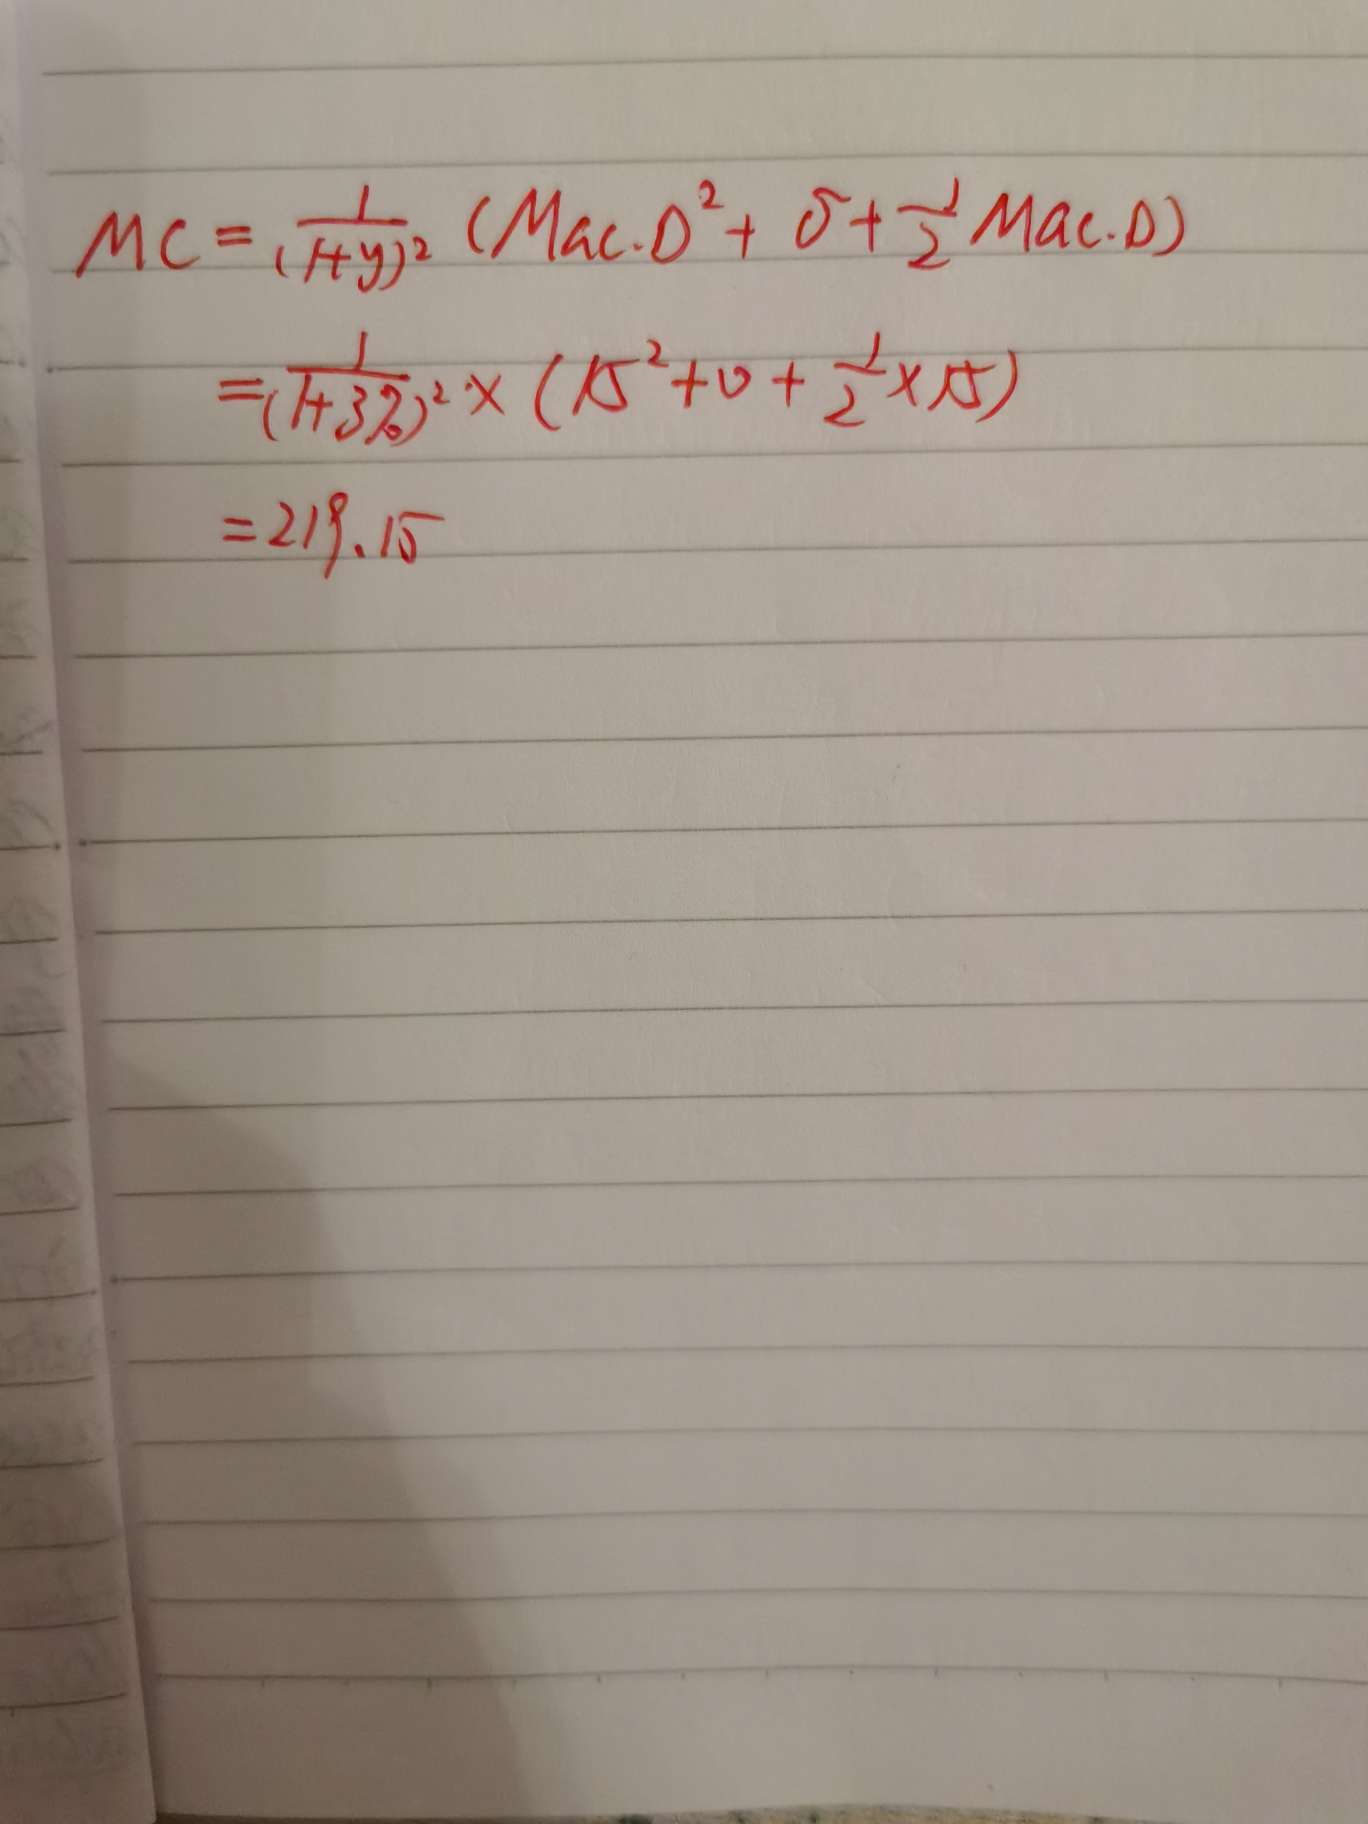 MC = 1/(1+y)² (Mac.D² + δ + 1/2 Mac.D)
= 1/(1+3%)² × (15² + 0 + 1/2 × 15)
= 219.15